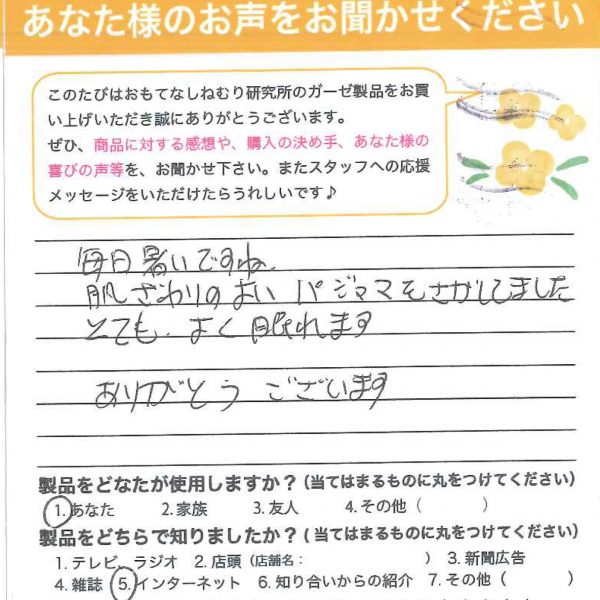 あなた様のお声をお聞かせください
このたびはおもてなしねむり研究所のガーゼ製品をお買
い上げいただき誠にありがとうございます。
ぜひ、商品に対する感想や、購入の決め手、あなた様の
喜びの声等を、お聞かせ下さい。またスタッフへの応援
メッセージをいただけたらうれしいです♪
毎日暑いですね。
肌ざわりのよい パジママをさがしてました
とても、よく眠れます
ありがとう ございます
製品をどなたが使用しますか？（当てはまるものに丸をつけてください）
1. あなた 2. 家族 3. 友人 4. その他（ ）
製品をどちらで知りましたか？（当てはまるものに丸をつけてください）
1. テレビ、ラジオ 2. 店頭（店舗名： ）3. 新聞広告
4. 雑誌 5. インターネット 6. 知り合いからの紹介 7. その他（ ）